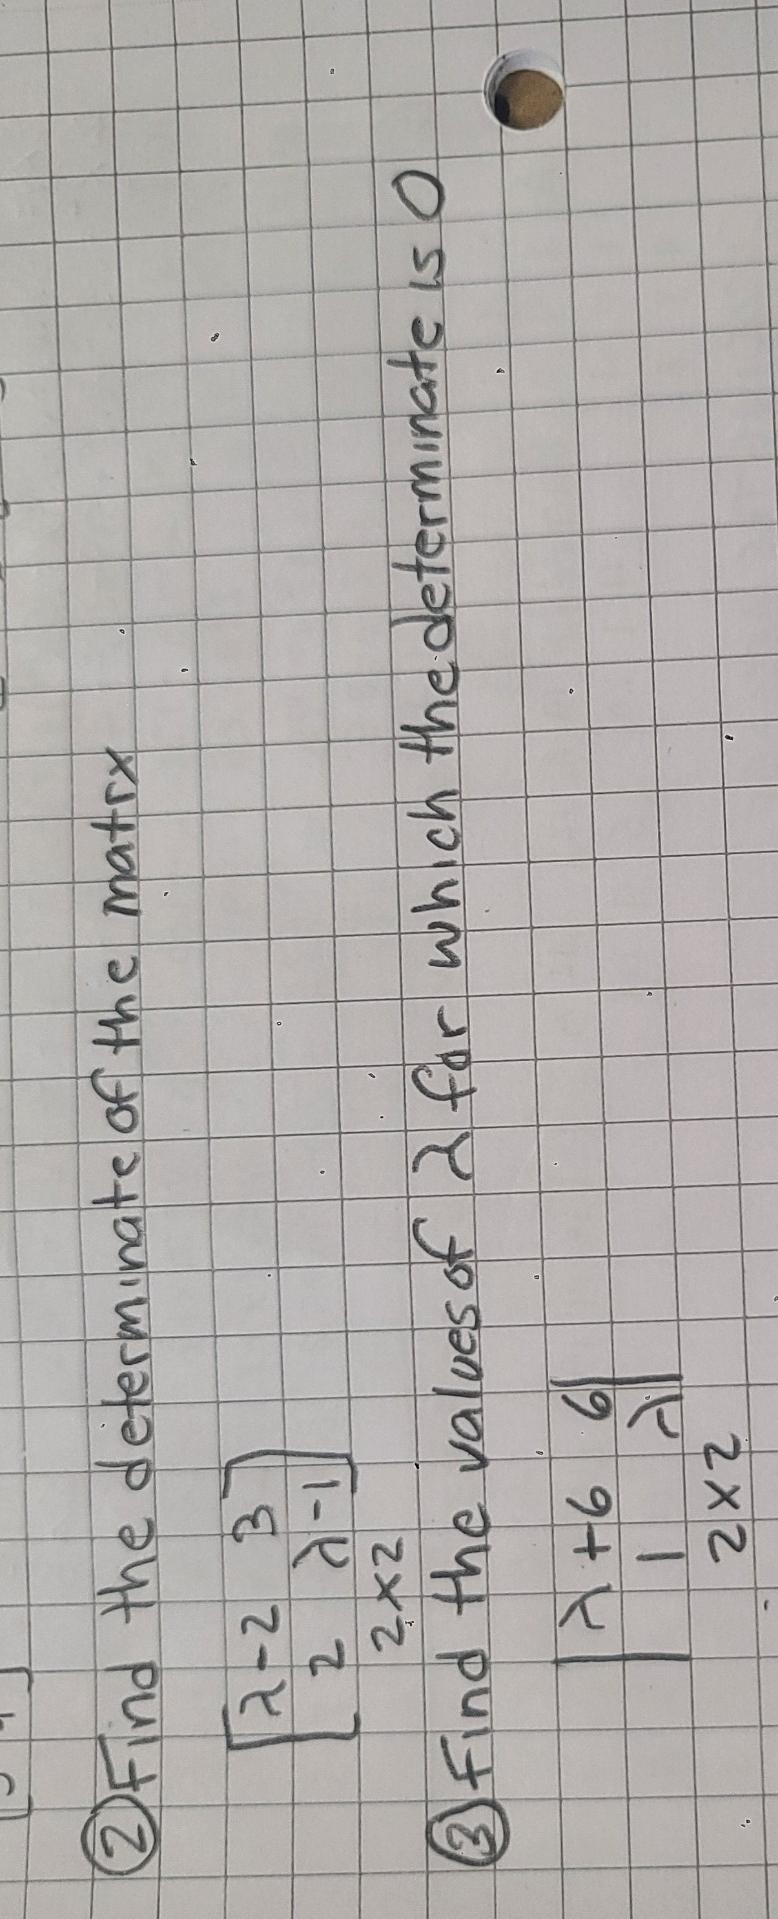 ② Find the determinate of the matrx
[λ-2 3
2 λ-1]
2x2
③ Find the values of λ for which the determinate is 0
|λ+6 6|
|1 λ|
2x2